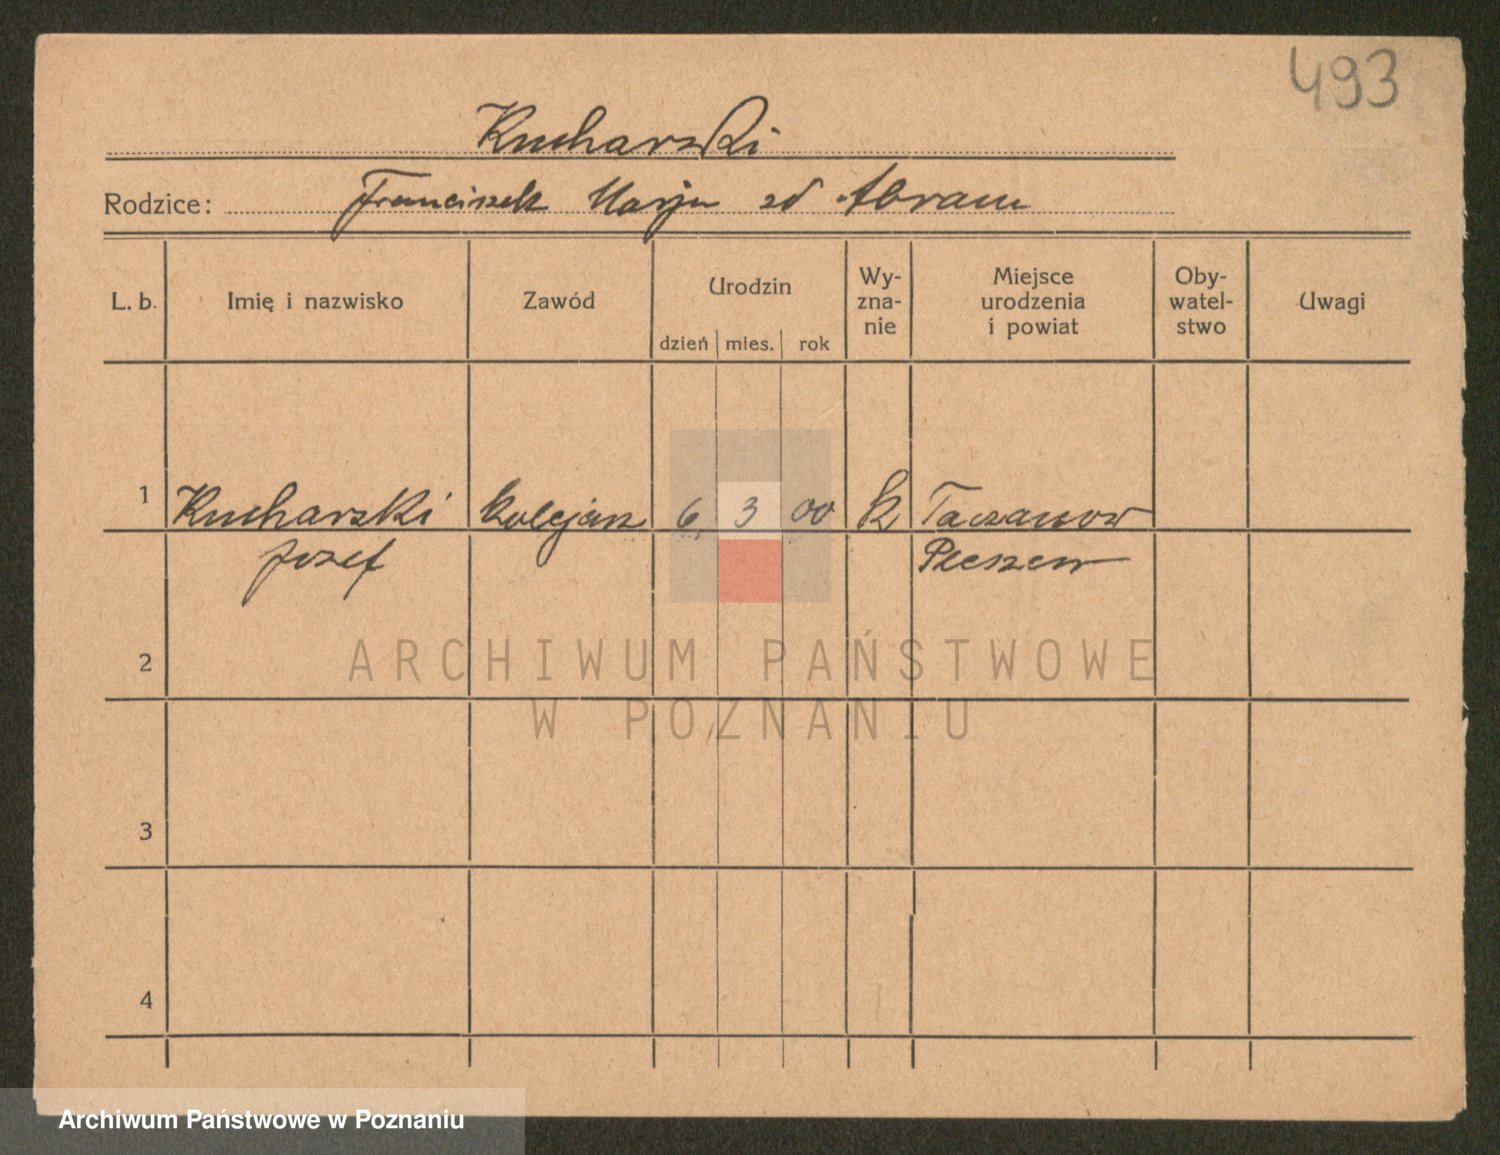 493
Kucharski
Rodzice: Franciszek Marja zd Abram
L. b.
Imię i nazwisko
Zawód
Urodzin
dzień
mies.
rok
Wy-
zna-
nie
Miejsce
urodzenia
i powiat
Oby-
watel-
stwo
Uwagi
1
Kucharski
Józef
kolejarz
6
3
00
k
Taczanow
Pleszew
2
3
4
ARCHIWUM PAŃSTWOWE
W POZNANIU
Archiwum Państwowe w Poznaniu